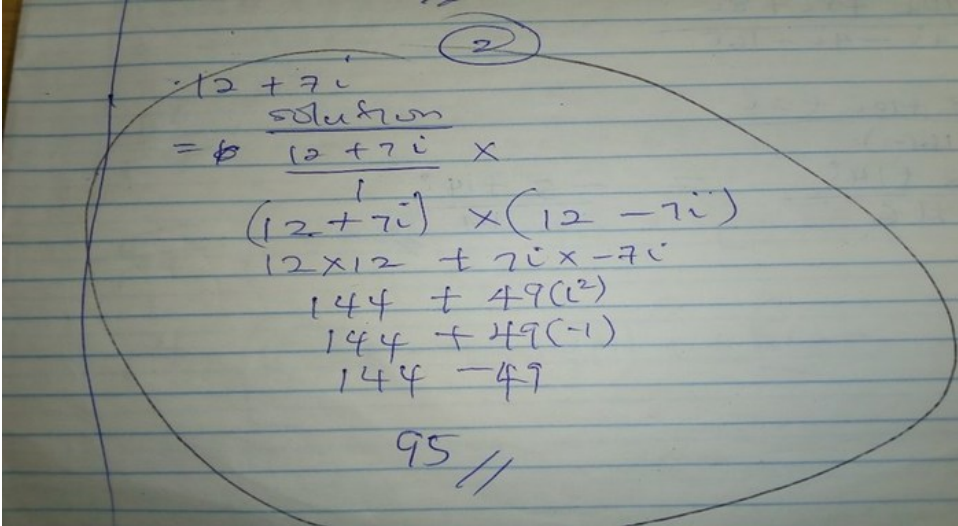 2
12 + 7i
solution
= 12 + 7i ×
1
(12 + 7i) × (12 - 7i)
12×12 + 7i × -7i
144 + 49(i²)
144 + 49(-1)
144 - 49
95 //